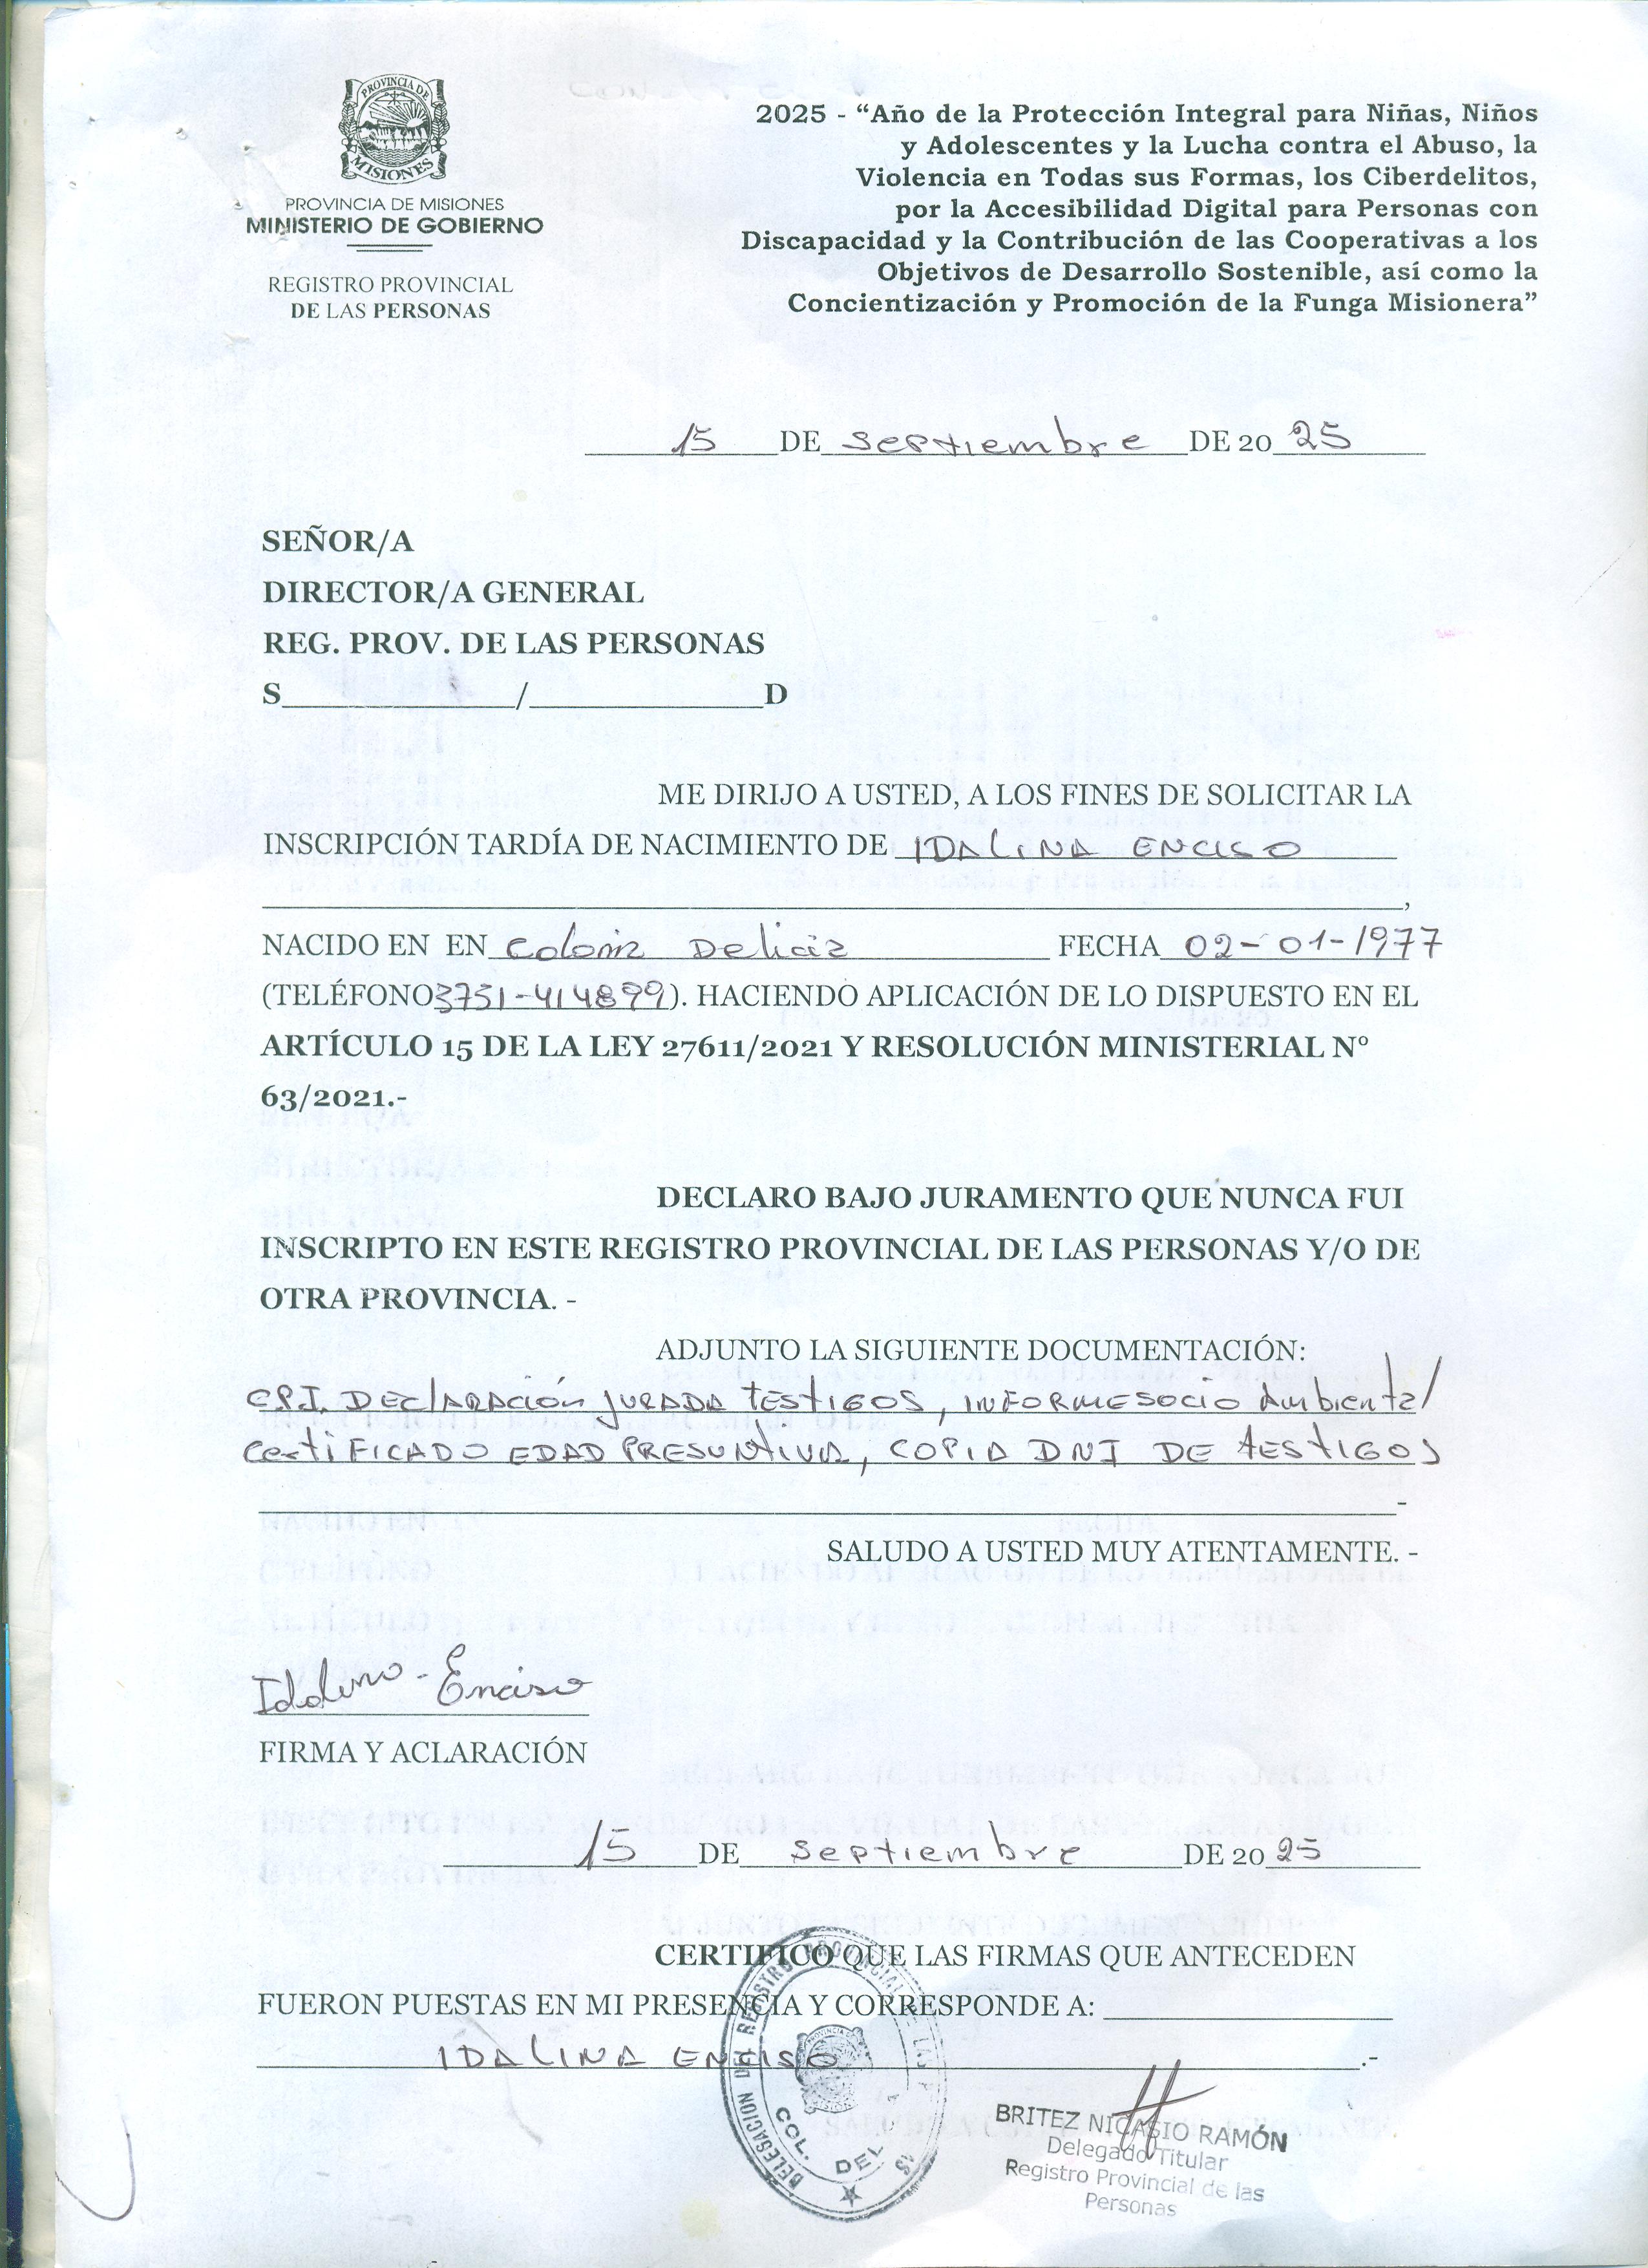 PROVINCIA DE
MISIONES
PROVINCIA DE MISIONES
MINISTERIO DE GOBIERNO
REGISTRO PROVINCIAL
DE LAS PERSONAS
2025 - “Año de la Protección Integral para Niñas, Niños
y Adolescentes y la Lucha contra el Abuso, la
Violencia en Todas sus Formas, los Ciberdelitos,
por la Accesibilidad Digital para Personas con
Discapacidad y la Contribución de las Cooperativas a los
Objetivos de Desarrollo Sostenible, así como la
Concientización y Promoción de la Funga Misionera”
15 DE septiembre DE 20 25
SEÑOR/A
DIRECTOR/A GENERAL
REG. PROV. DE LAS PERSONAS
S______________/______________D
ME DIRIJO A USTED, A LOS FINES DE SOLICITAR LA
INSCRIPCIÓN TARDÍA DE NACIMIENTO DE IDALINA ENCISO
,
NACIDO EN EN Colonia Delicia FECHA 02-01-1977
(TELÉFONO 3751-414899). HACIENDO APLICACIÓN DE LO DISPUESTO EN EL
ARTÍCULO 15 DE LA LEY 27611/2021 Y RESOLUCIÓN MINISTERIAL N°
63/2021.-
DECLARO BAJO JURAMENTO QUE NUNCA FUI
INSCRIPTO EN ESTE REGISTRO PROVINCIAL DE LAS PERSONAS Y/O DE
OTRA PROVINCIA. -
ADJUNTO LA SIGUIENTE DOCUMENTACIÓN:
CPI. DEClARACIón JURADA TESTIGOS, INFORME SOCIO Ambiental
CertiFICADO EDAD PRESUNTIVA, COPIA DNI DE TESTIGOS
-
SALUDO A USTED MUY ATENTAMENTE. -
Idalina - Enciso
FIRMA Y ACLARACIÓN
15 DE septiembre DE 20 25
CERTIFICO QUE LAS FIRMAS QUE ANTECEDEN
FUERON PUESTAS EN MI PRESENCIA Y CORRESPONDE A:
IDALINA ENCISO .-
DELEGACION DEL REGISTRO PROVINCIAL DE LAS
COL. DEL
BRITEZ NICASIO RAMÓN
Delegado Titular
Registro Provincial de las
Personas